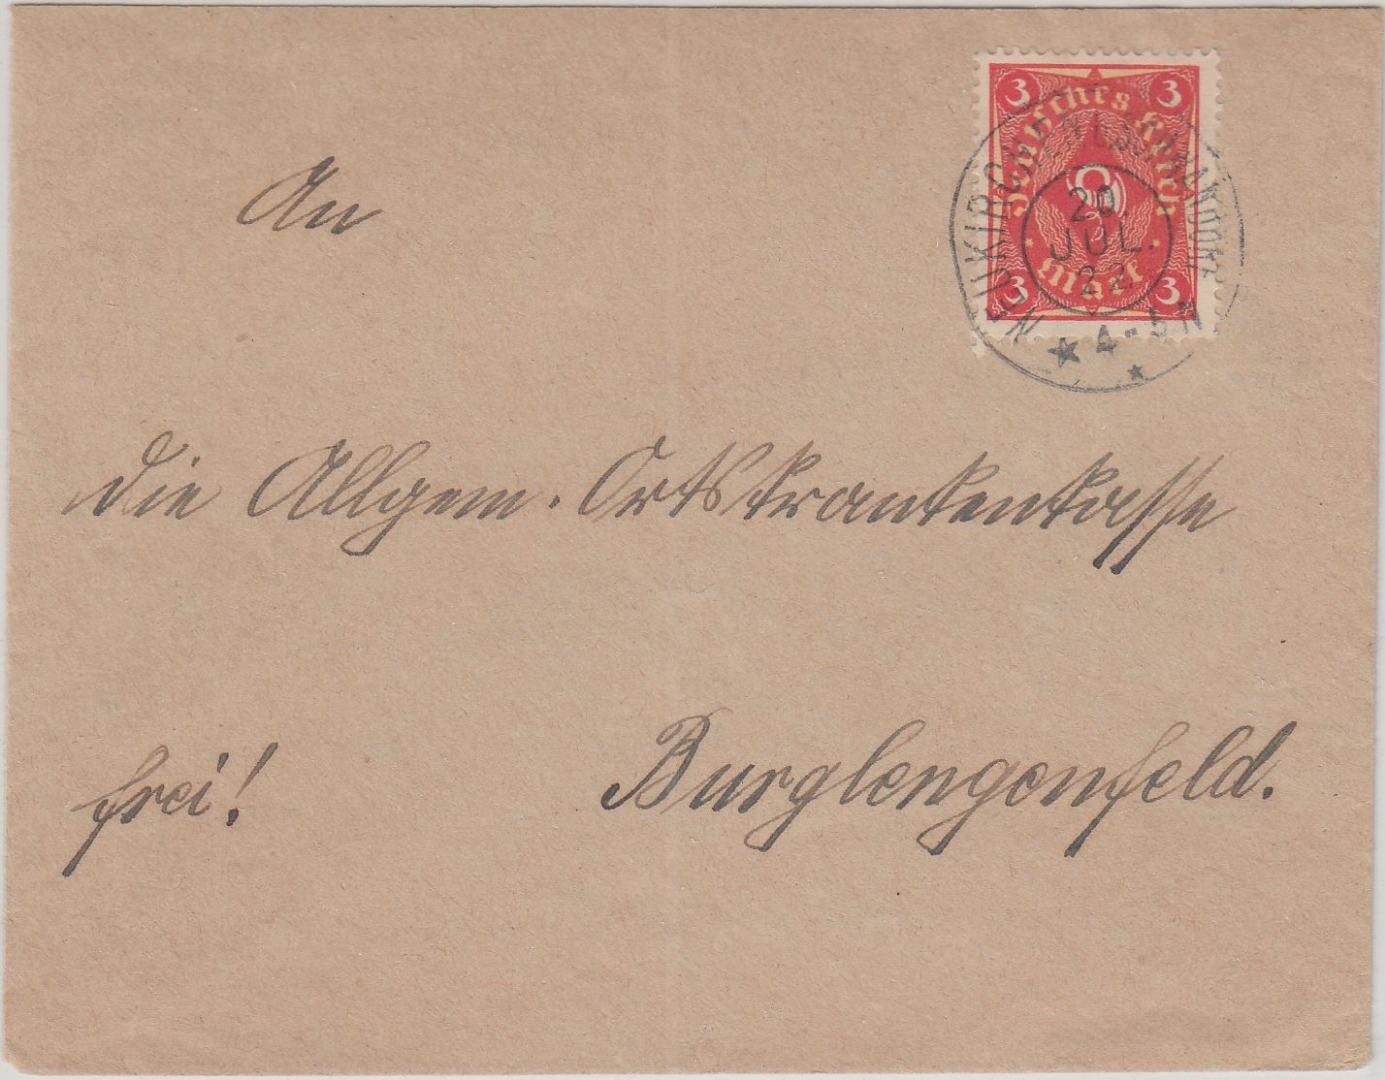 3 3
Deutsches Reich
3 3
Mark
NEUKIRCHEN b. SCHWANDORF
20.
JUL.
22.
4-5 N
An
die Allgem. Ortskrankenkasse
frei! Burglengenfeld.